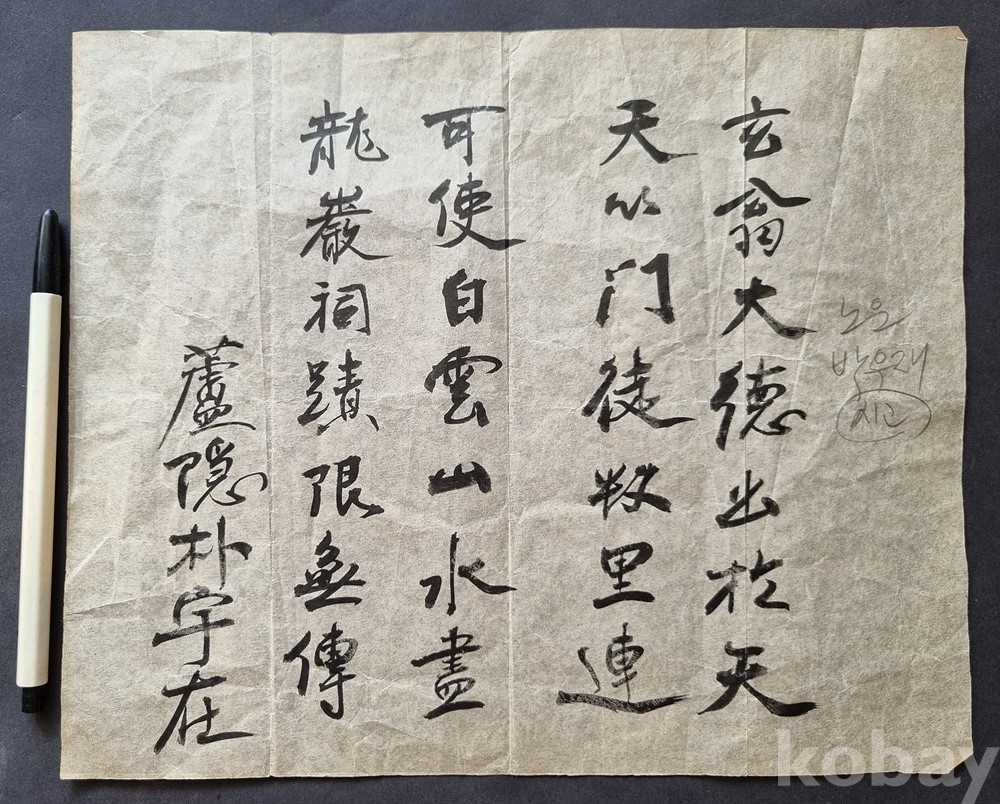 노은
박우재
시고
玄翁大德出於天
天以门徒数里連
可使白雲山水盡
龍巖祠蹟限無傳
蘆隱朴宇在
kobay